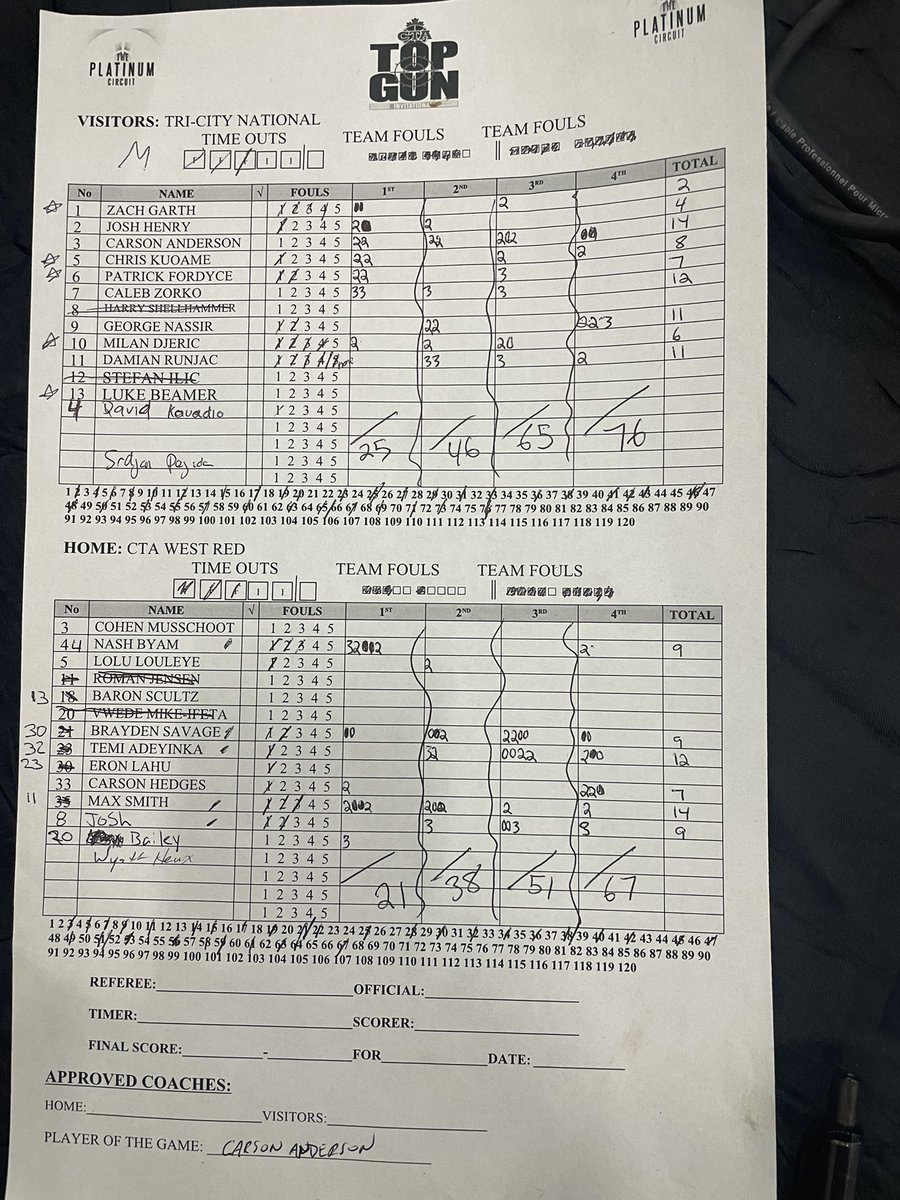 THE PLATINUM CIRCUIT
CTA TOP GUN INVITATIONAL
THE PLATINUM CIRCUIT
VISITORS: TRI-CITY NATIONAL
TIME OUTS TEAM FOULS TEAM FOULS
No NAME √ FOULS 1ST 2ND 3RD 4TH TOTAL
1 ZACH GARTH 1 2 3 4 5 2 2
2 JOSH HENRY 1 2 3 4 5 2 2 4
3 CARSON ANDERSON 1 2 3 4 5 22 22 222 14
5 CHRIS KUOAME 1 2 3 4 5 22 2 2 8
6 PATRICK FORDYCE 1 2 3 4 5 22 3 7
7 CALEB ZORKO 1 2 3 4 5 33 3 3 12
8 HARRY SHELLHAMMER 1 2 3 4 5
9 GEORGE NASSIR 1 2 3 4 5 22 223 11
10 MILAN DJERIC 1 2 3 4 5 2 2 20 6
11 DAMIAN RUNJAC 1 2 3 4 33 3 2 11
12 STEFAN ILIC 1 2 3 4 5
13 LUKE BEAMER 1 2 3 4 5
4 David Kouadio 1 2 3 4 5
1 2 3 4 5
1 2 3 4 5 25 46 65 76
Srdjan 1 2 3 4 5
1 2 3 4 5
1 2 3 4 5 6 7 8 9 10 11 12 13 14 15 16 17 18 19 20 21 22 23 24 25 26 27 28 29 30 31 32 33 34 35 36 37 38 39 40 41 42 43 44 45 46 47
48 49 50 51 52 53 54 55 56 57 58 59 60 61 62 63 64 65 66 67 68 69 70 71 72 73 74 75 76 77 78 79 80 81 82 83 84 85 86 87 88 89 90
91 92 93 94 95 96 97 98 99 100 101 102 103 104 105 106 107 108 109 110 111 112 113 114 115 116 117 118 119 120
HOME: CTA WEST RED
TIME OUTS TEAM FOULS TEAM FOULS
No NAME √ FOULS 1ST 2ND 3RD 4TH TOTAL
3 COHEN MUSSCHOOT 1 2 3 4 5
44 NASH BYAM 1 2 3 4 5 32002 2 9
5 LOLU LOULEYE 1 2 3 4 5 2
11 ROMAN JENSEN 1 2 3 4 5
13 18 BARON SCULTZ 1 2 3 4 5
20 VWEDE MIKE-IFETA 1 2 3 4 5
30 21 BRAYDEN SAVAGE 1 2 3 4 5 00 002 2200 00 9
32 23 TEMI ADEYINKA 1 2 3 4 5 32 0022 200 12
23 30 ERON LAHU 1 2 3 4 5
33 CARSON HEDGES 1 2 3 4 5 2 220 7
11 35 MAX SMITH 1 2 3 4 5 2002 202 2 2 14
8 Josh 1 2 3 4 5 3 003 3 9
20 Bailey 1 2 3 4 5 3
Wyatt 1 2 3 4 5
1 2 3 4 5
1 2 3 4 5 21 38 51 67
1 2 3 4 5
1 2 3 4 5 6 7 8 9 10 11 12 13 14 15 16 17 18 19 20 21 22 23 24 25 26 27 28 29 30 31 32 33 34 35 36 37 38 39 40 41 42 43 44 45 46 47
48 49 50 51 52 53 54 55 56 57 58 59 60 61 62 63 64 65 66 67 68 69 70 71 72 73 74 75 76 77 78 79 80 81 82 83 84 85 86 87 88 89 90
91 92 93 94 95 96 97 98 99 100 101 102 103 104 105 106 107 108 109 110 111 112 113 114 115 116 117 118 119 120
REFEREE: OFFICIAL:
TIMER: SCORER:
FINAL SCORE: - FOR DATE:
APPROVED COACHES:
HOME: VISITORS:
PLAYER OF THE GAME: CARSON ANDERSON